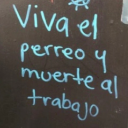 Viva el
perreo y
muerte al
trabajo